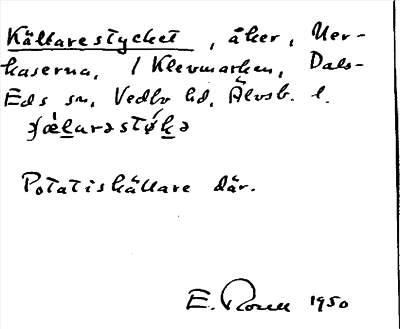 Källarestycket, åker, Ner-
kaserna, / Klevmarken, Dals-
Eds sn, Vedbo hd, Älvsb. l.
Potatiskällare där.
E. 1950